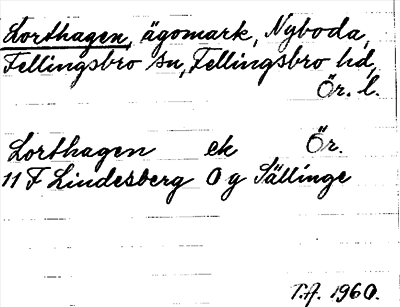 Lorthagen, ägomark, Nyboda,
Fellingsbro sn, Fellingsbro hd,
Ör. l.
Lorthagen ek Ör.
11 F Lindesberg 0 g Sällinge
T.A. 1960.